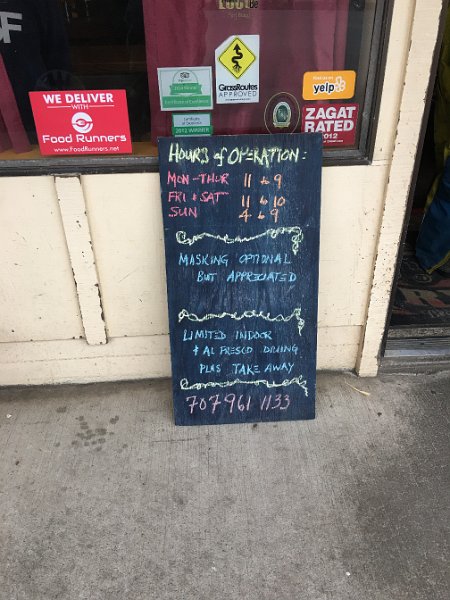 WE DELIVER
WITH
Food Runners
www.FoodRunners.net
GrassRoutes
APPROVED
yelp
ZAGAT
RATED
2012
2012 WINNER
HOURS of OPERATION:
MON-THUR 11 to 9
FRI & SAT 11 to 10
SUN 4 to 9
MASKING OPTIONAL
BUT APPRECIATED
LIMITED INDOOR
& AL FRESCO DINING
PLUS TAKE AWAY
707 961 1133